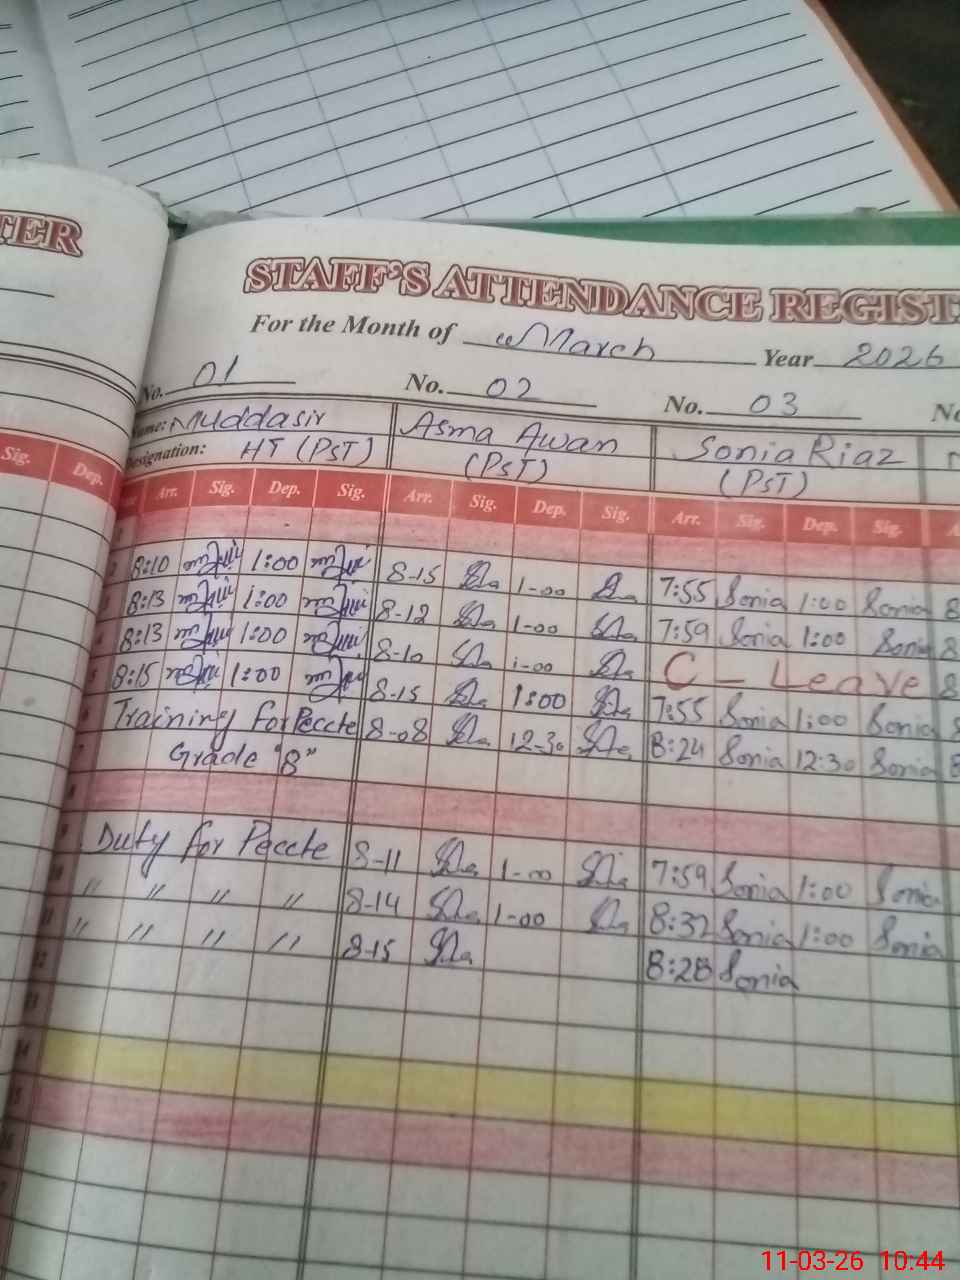 TER
STAFF'S ATTENDANCE REGIST
For the Month of March Year 2026
No. 01 No. 02 No. 03 No
Name: Muddasir Asma Awan Sonia Riaz
Designation: HT (PST) (PST) (PST)
Sig. Dep. Arr. Sig. Dep. Sig. Arr. Sig. Dep. Sig. Arr. Sig. Dep. Sig.
2 8:10 1:00 8-15 1-00 7:55 Sonia 1:00 Sonia 8
3 8:13 1:00 8-12 1-00 7:59 Sonia 1:00 Sonia 8
4 8:13 1:00 8-10 1-00 C - Leave 8
5 8:15 1:00 8-15 1:00 7:55 Sonia 1:00 Sonia 8
6 Training for Peccte 8-08 12-30 8:24 Sonia 12:30 Sonia 8
7 Grade "8"
8
9 Duty for Peccte 8-11 1-00 7:59 Sonia 1:00 Sonia
10 " " " " 8-14 1-00 8:32 Sonia 1:00 Sonia
11 " " " " 8-15 8:28 Sonia
12
13
14
15
16
11-03-26 10:44